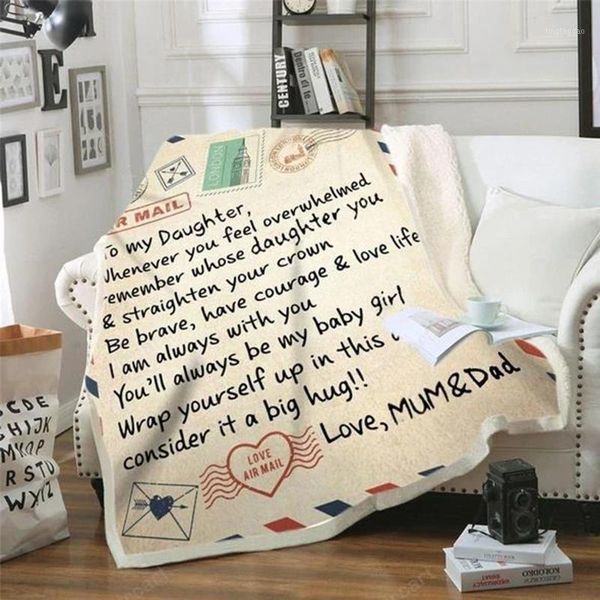 LONDON
AIR MAIL
To my Daughter,
Whenever you feel overwhelmed
remember whose daughter you
& straighten your crown
Be brave, have courage & love life
I am always with you
You'll always be my baby girl
Wrap yourself up in this
consider it a big hug!!
Love, MUM&Dad
LOVE
AIR MAIL
CENTURY
Dentro di te
E
CDE
HIJK
MNO
RSTU
WYZ
KOŁODKO